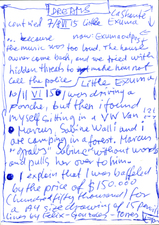 DREAMS
cont'ved 7/9/VI 15 Little Exuma
... because now: Exumaoupsi
the music was too loud. The house
owner came back, and we tried with
hidden threats to make him not
call the police. Little Exuma
10/11 VI 15 I was driving a
porsche, but then I found
myself sitting in a VW Van
Marcus, Sabine Wall and I
are camping in a forest. Marcus
"grabs" Sabine without words
and pulls her over to him.
I explain that I was baffled
by the price of $150.000
(hundredfifty thousand) for
a A4 size drawing of 15 pencil
lines by Felix Gonzales-Torres